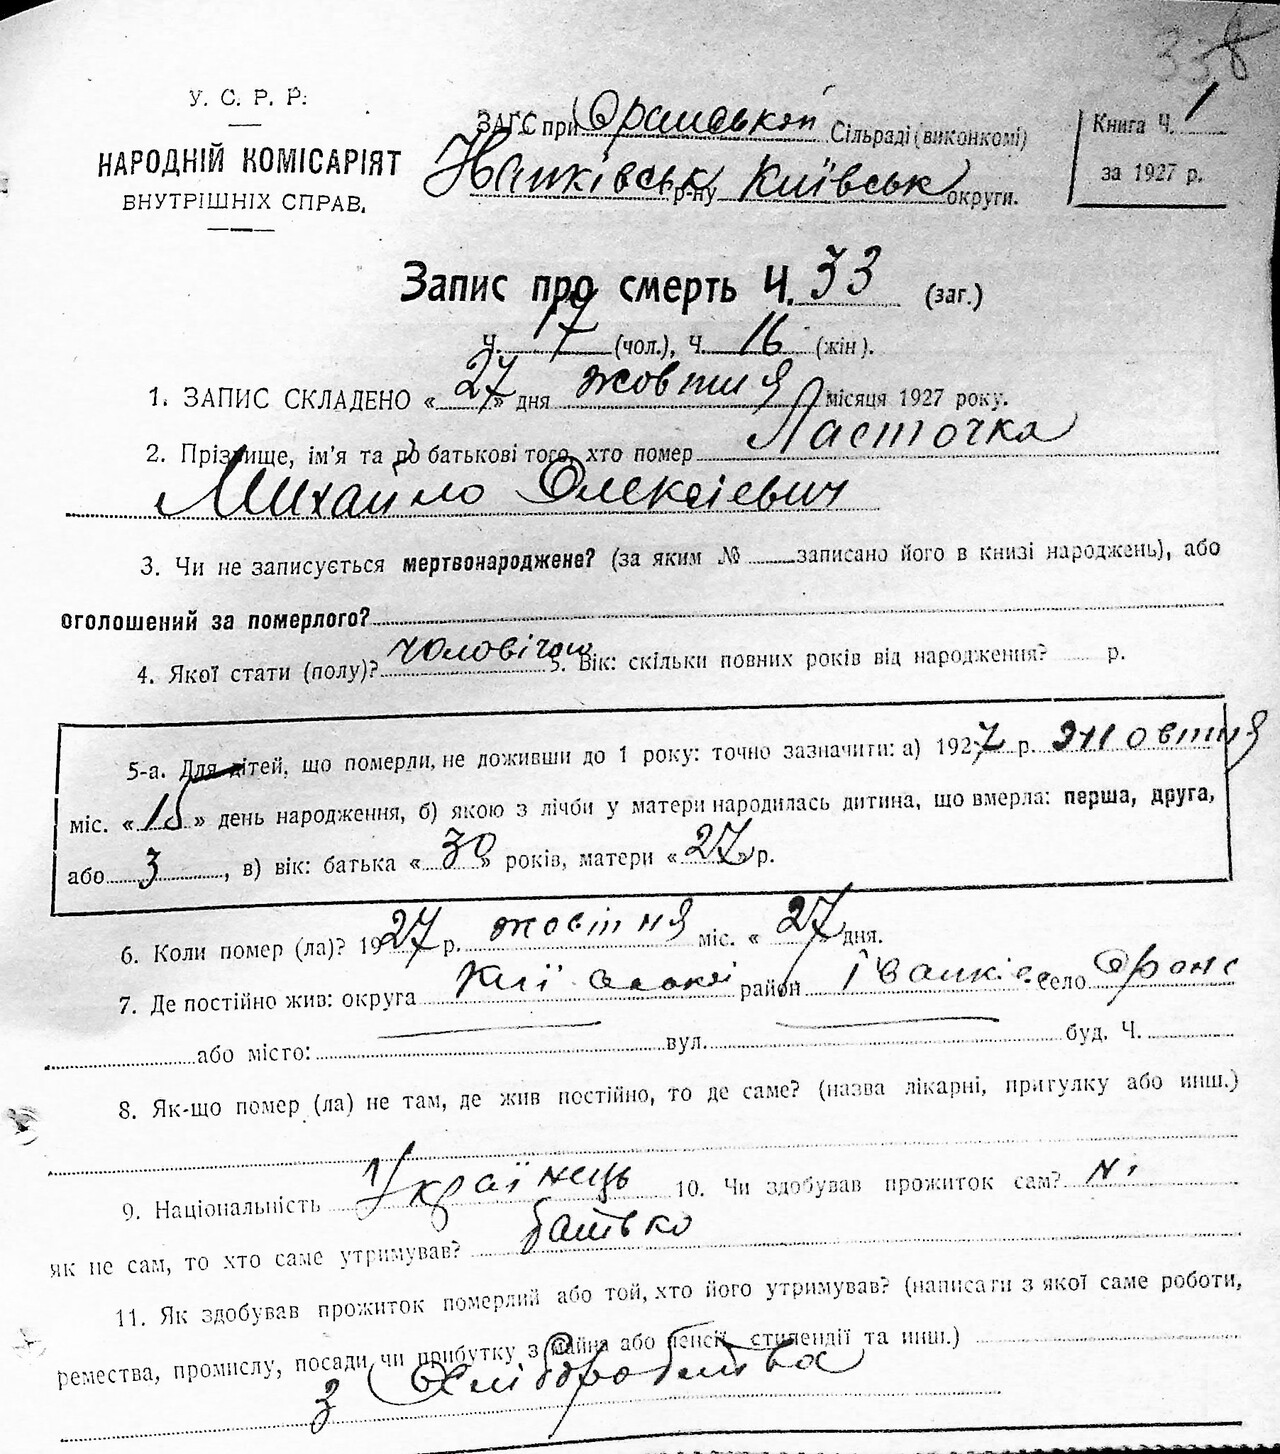 338
У. С. Р. Р.
НАРОДНІЙ КОМІСАРІЯТ
ВНУТРІШНІХ СПРАВ.
ЗАГС при Оранській Сільраді (виконкомі)
р-ну Київськ округи.
Книга Ч. 1
за 1927 р.
Запис про смерть Ч. 33 (заг.)
Ч. 17 (чол.), Ч. 16 (жін).
1. ЗАПИС СКЛАДЕНО « 27 » дня жовтня місяця 1927 року.
2. Прізвище, ім'я та по батькові того, хто помер Ласточка
Михайло Олексієвич
3. Чи не записується мертвонароджене? (за яким № записано його в книзі народжень), або
оголошений за померлого?
4. Якої стати (полу)? чоловічої 5. Вік: скільки повних років від народження? р.
5-а. Для дітей, що померли, не доживши до 1 року: точно зазначити: а) 1927 р. жовтня
міс. « 15 » день народження, б) якою з лічби у матери народилась дитина, що вмерла: перша, друга,
або 3 , в) вік: батька « 30 » років, матери « 27 » р.
6. Коли помер (ла)? 1927 р. жовтня міс. « 27 » дня.
7. Де постійно жив: округа Київської район Іванків. село Оране
або місто: вул. буд. Ч.
8. Як-що помер (ла) не там, де жив постійно, то де саме? (назва лікарні, притулку або инш.)
9. Національність Українець 10. Чи здобував прожиток сам? Ні
як не сам, то хто саме утримував? батько
11. Як здобував прожиток померлий або той, хто його утримував? (написати з якої саме роботи,
ремества, промислу, посади чи прибутку з майна або пенсії, стипендії та инш.)
з хліборобства